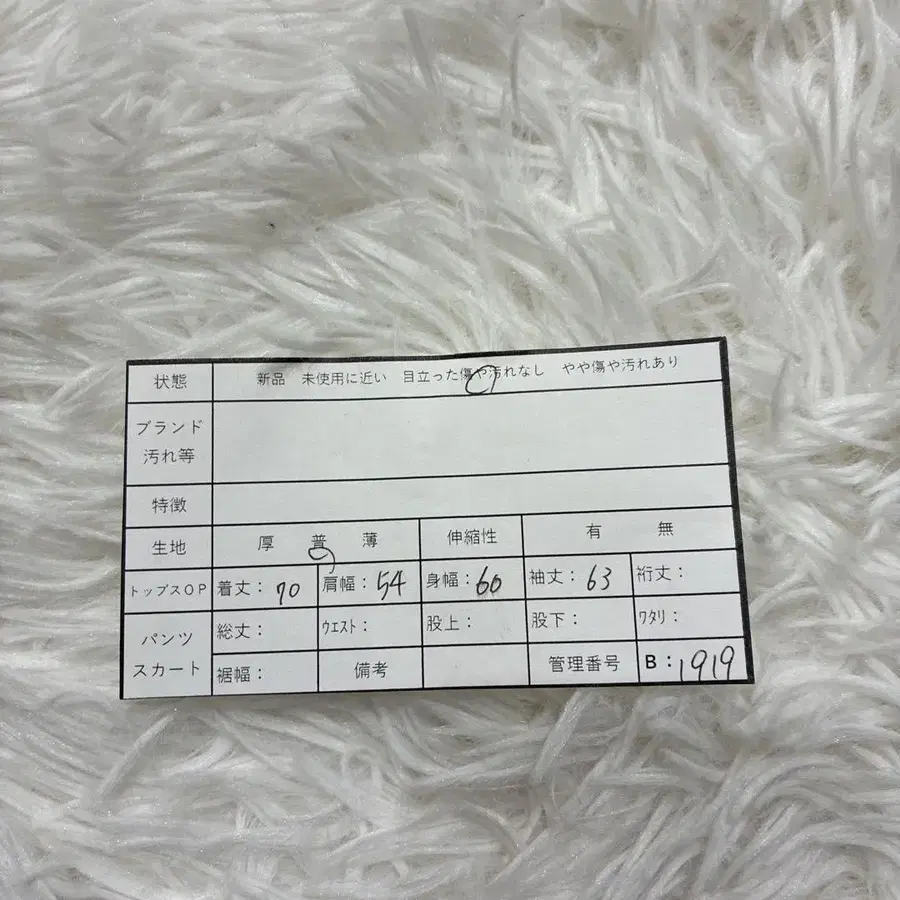 状態 新品 未使用に近い 目立った傷や汚れなし やや傷や汚れあり
ブランド
汚れ等
特徴
生地 厚 普 薄 伸縮性 有 無
トップスOP 着丈：70 肩幅：54 身幅：60 袖丈：63 裄丈：
パンツ
スカート
総丈： ウエスト： 股上： 股下： ワタリ：
裾幅： 備考 管理番号 B：1919